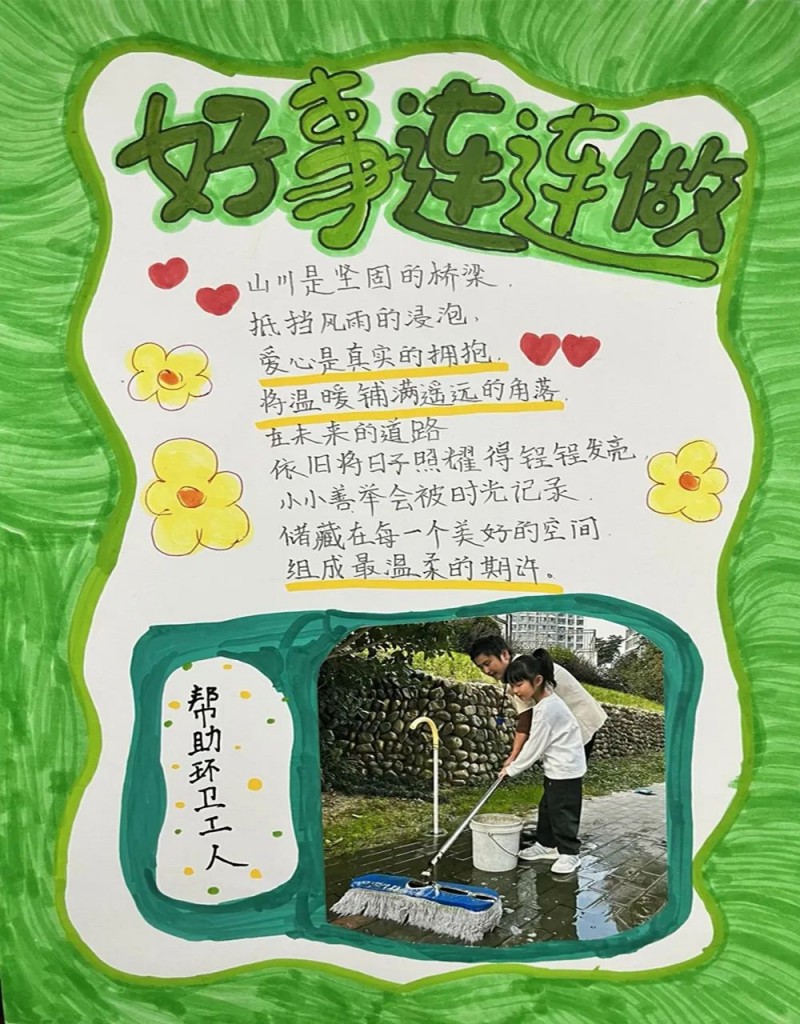 好事连连做
山川是坚固的桥梁.
抵挡风雨的浸泡,
爱心是真实的拥抱.
将温暖铺满遥远的角落.
在未来的道路
依旧将日子照耀得锃锃发亮.
小小善举会被时光记录.
储藏在每一个美好的空间.
组成最温柔的期许。
帮助环卫工人